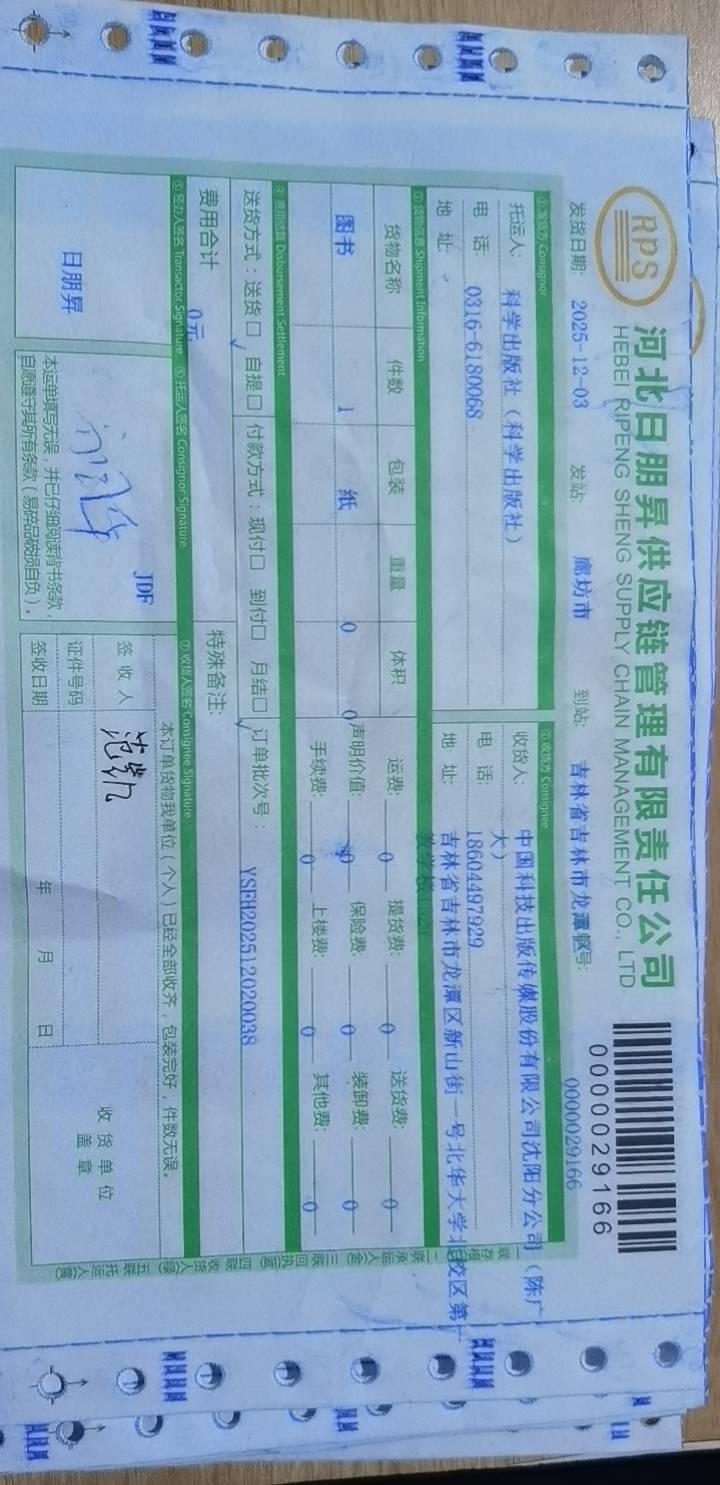 RPS
河北日朋昇供应链管理有限责任公司
HEBEI RIPENG SHENG SUPPLY CHAIN MANAGEMENT CO., LTD
0000029166
发货日期: 2025-12-03 发站: 廊坊市 到站: 吉林省吉林市龙潭 号: 0000029166
①发货方 Consignor ②收货方 Consignee
托运人: 科学出版社（科学出版社） 收货人: 中国科技出版传媒股份有限公司沈阳分公司（陈广
大）
电 话: 0316-6180068 电 话: 18604497929
地 址: 地 址: 吉林省吉林市龙潭区新山街一号北华大学北校区第一
③货物信息 Shipment Information
货物名称 件数 包装 重量 体积 运费: 0 提货费: 0 送货费: 0
图书 1 纸 0 0 声明价值: 0 保险费: 0 装卸费: 0
手续费: 0 上楼费: 0 其他费: 0
④费用结算 Disbursement Settlement
送货方式：送货□ 自提□ 付款方式：现付□ 到付□ 月结□ 订单批次号： YSFH202512020038
费用合计 0元 特殊备注:
⑤经办人签名 Transactor Signature ⑥托运人签名 Consignor Signature ⑦收货人签名 Consignee Signature
日朋昇
JDF
本运单填写无误，并已仔细阅读背书条款，
自愿遵守其所有条款（易碎品破损自负）。
本订单货物我单位（个人）已经全部收齐，包装完好，件数无误。
签 收 人 范凯
证件号码
签收日期 年 月 日
收货单位
盖 章